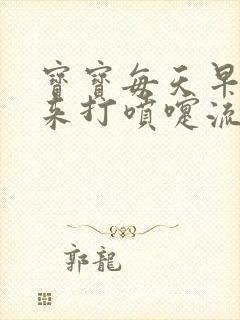 寶寶每天早
來打噴嚏流
郭龍